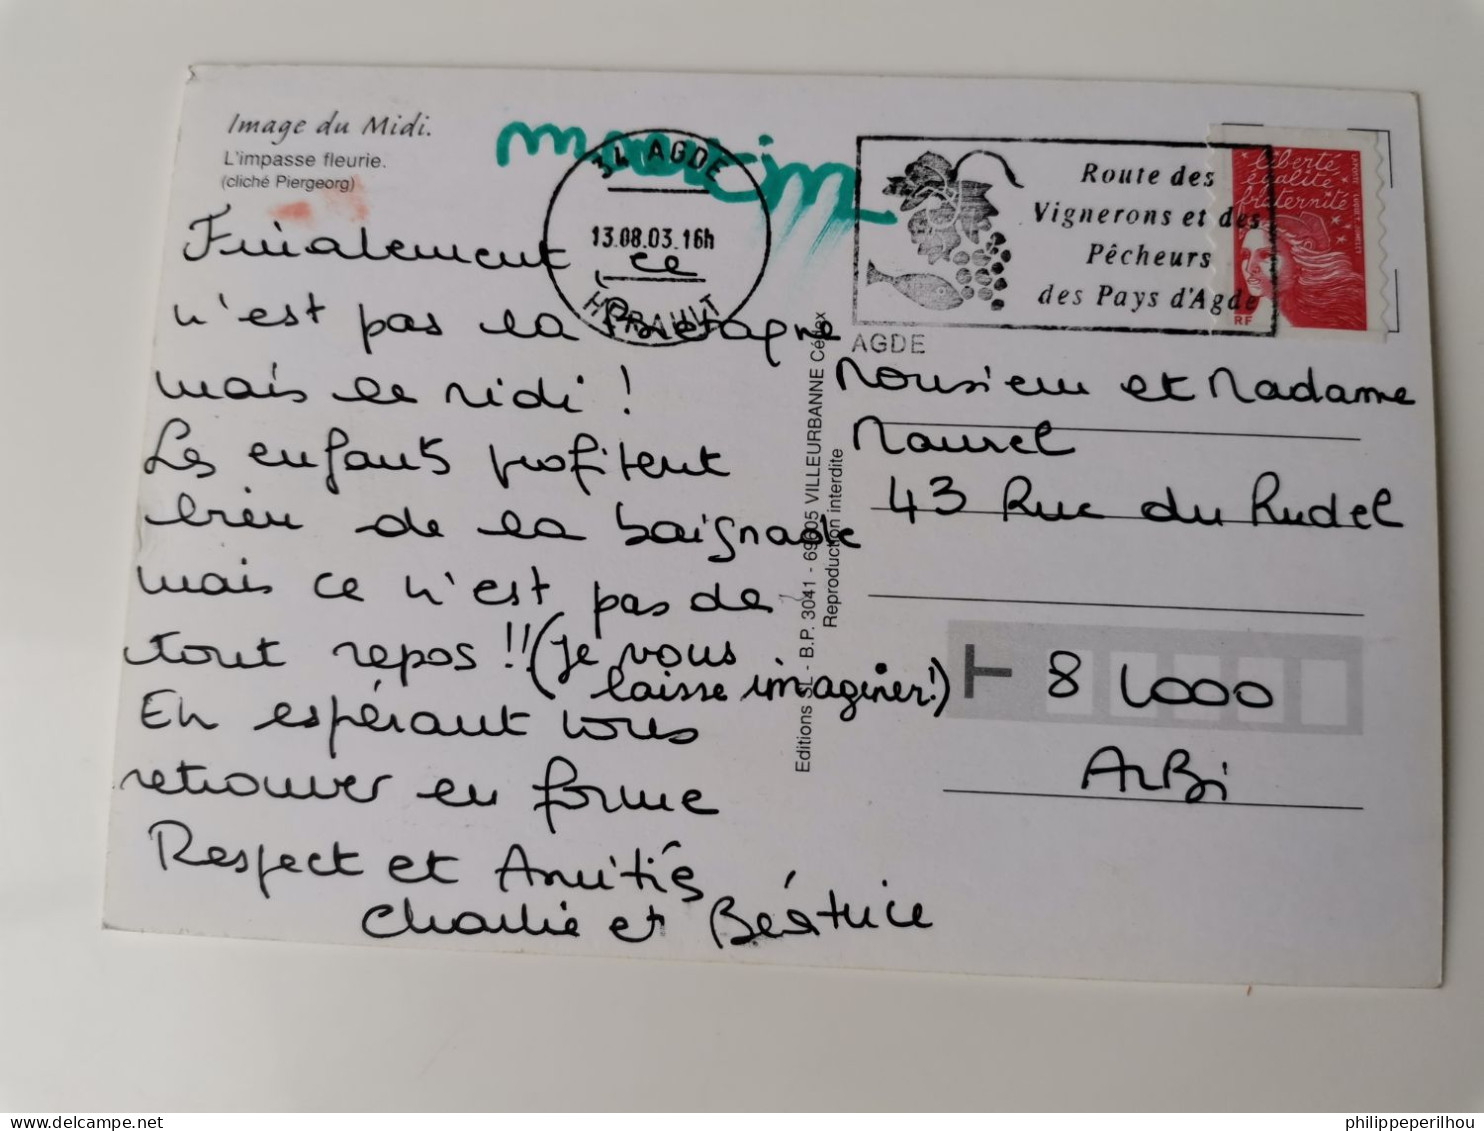 Image du Midi.
L'impasse fleurie.
(cliché Piergeorg)
34 AGDE
13.08.03.16h
HERAULT
Route des
Vignerons et des
Pêcheurs
des Pays d'Agde
AGDE
liberté
égalité
fraternité
RF
Finalement ce
n'est pas la Bretagne
mais le Midi !
Les enfants profitent
bien de la baignade
mais ce n'est pas de
tout repos !! (je vous
laisse imaginer!)
En espérant vous
retrouver en forme
Respect et Amitiés
Charlie et Béatrice
Editions SL - B.P. 3041 - 69605 VILLEURBANNE Cédex
Reproduction interdite
Monsieur et Madame
Maurel
43 Rue du Rudel
T 81000
ALBi
philippeperilhou